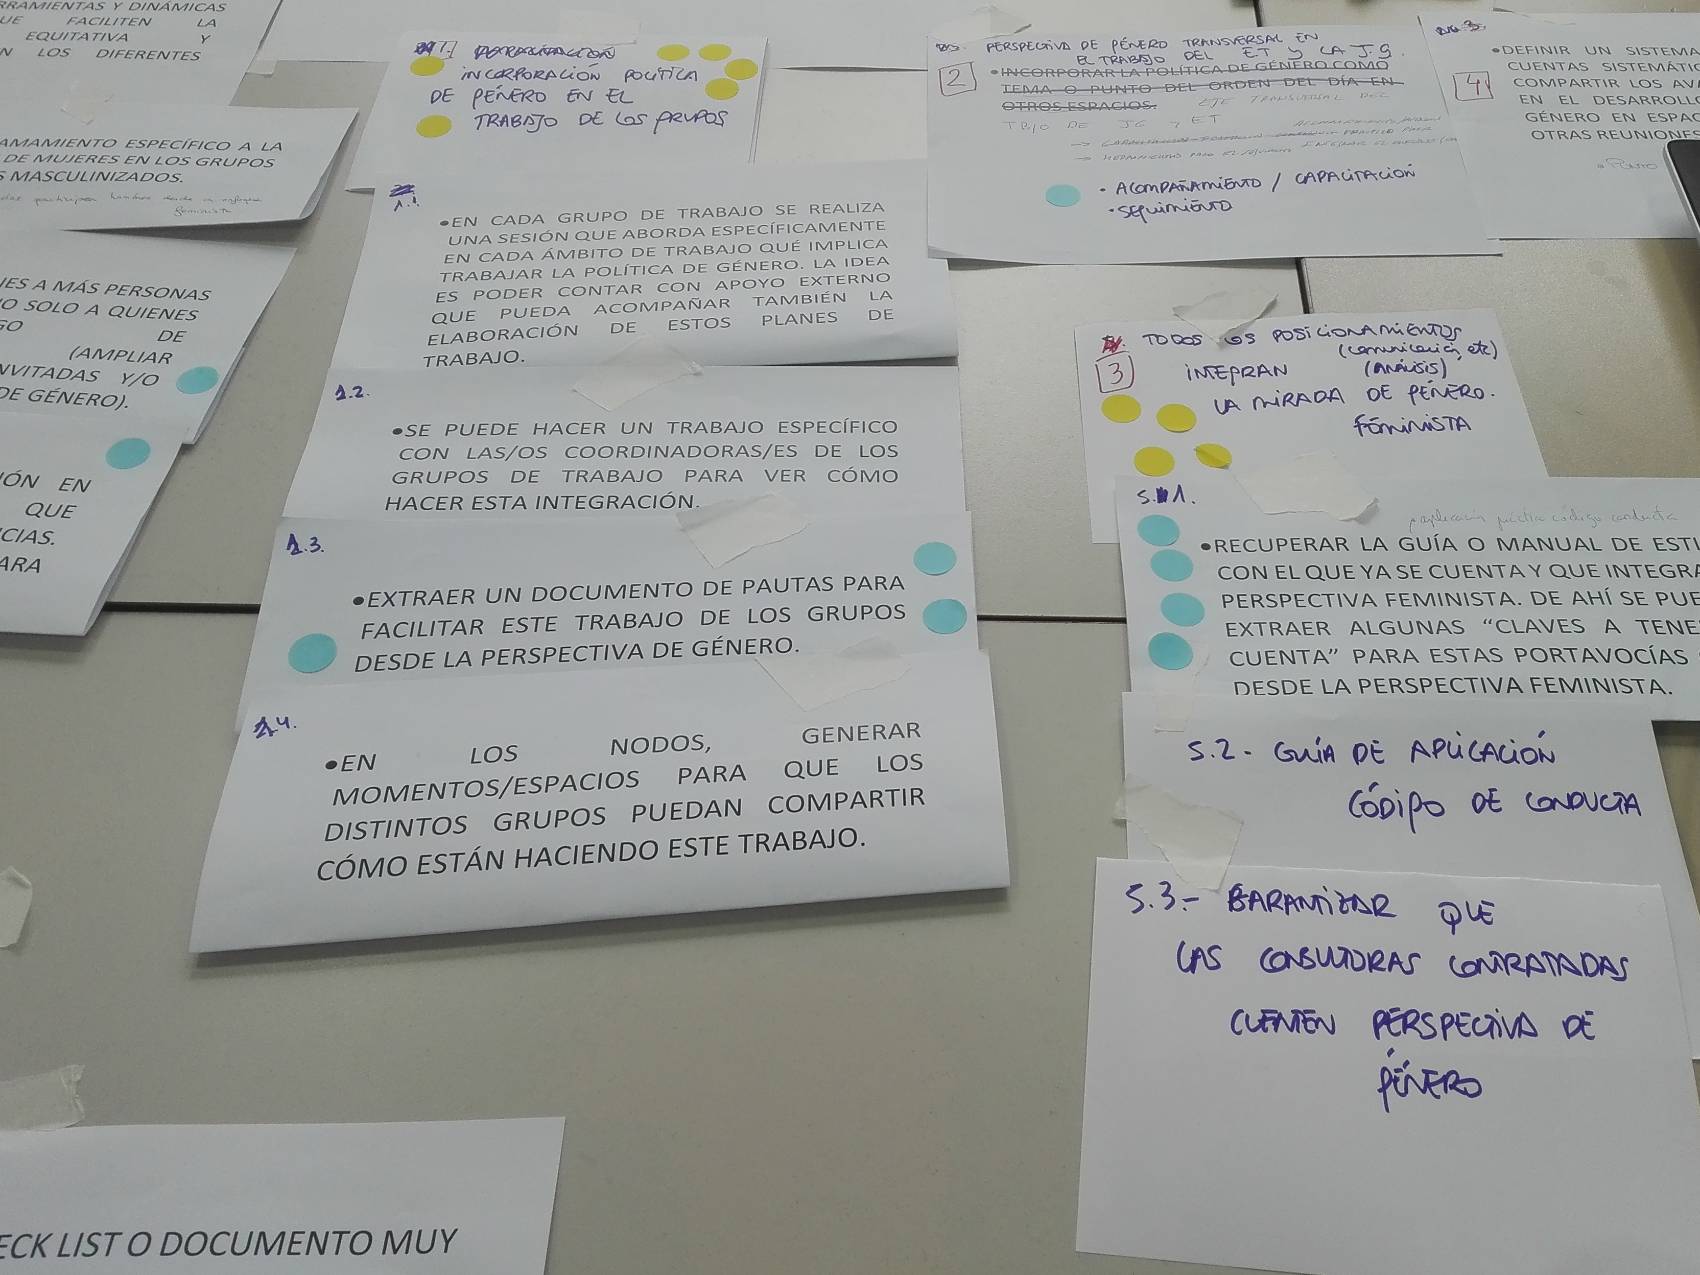 RRAMIENTAS Y DINÁMICAS
UE FACILITEN LA
EQUITATIVA Y
N LOS DIFERENTES
AMAMIENTO ESPECÍFICO A LA
DE MUJERES EN LOS GRUPOS
S MASCULINIZADOS.
feminista
NES A MÁS PERSONAS
O SOLO A QUIENES
GO DE
(AMPLIAR
NVITADAS Y/O
DE GÉNERO).
IÓN EN
QUE
CIAS.
ARA
ECK LIST O DOCUMENTO MUY
1.
INCORPORACIÓN POLÍTICA
DE GÉNERO EN EL
TRABAJO DE LOS GRUPOS
1.1
•EN CADA GRUPO DE TRABAJO SE REALIZA
UNA SESIÓN QUE ABORDA ESPECÍFICAMENTE
EN CADA ÁMBITO DE TRABAJO QUÉ IMPLICA
TRABAJAR LA POLÍTICA DE GÉNERO. LA IDEA
ES PODER CONTAR CON APOYO EXTERNO
QUE PUEDA ACOMPAÑAR TAMBIÉN LA
ELABORACIÓN DE ESTOS PLANES DE
TRABAJO.
1.2.
•SE PUEDE HACER UN TRABAJO ESPECÍFICO
CON LAS/OS COORDINADORAS/ES DE LOS
GRUPOS DE TRABAJO PARA VER CÓMO
HACER ESTA INTEGRACIÓN.
1.3.
•EXTRAER UN DOCUMENTO DE PAUTAS PARA
FACILITAR ESTE TRABAJO DE LOS GRUPOS
DESDE LA PERSPECTIVA DE GÉNERO.
1.4.
•EN LOS NODOS, GENERAR
MOMENTOS/ESPACIOS PARA QUE LOS
DISTINTOS GRUPOS PUEDAN COMPARTIR
CÓMO ESTÁN HACIENDO ESTE TRABAJO.
PERSPECTIVA DE GÉNERO TRANSVERSAL EN
EL TRABAJO DEL ET Y LA J.G.
2
•INCORPORAR LA POLÍTICA DE GÉNERO COMO
TEMA O PUNTO DEL ORDEN DEL DÍA EN
OTROS ESPACIOS.
EJE TRANSVERSAL DEL
TBJO DE JG Y ET
• ACOMPAÑAMIENTO / CAPACITACIÓN
• SEGUIMIENTO
4
•DEFINIR UN SISTEMA
CUENTAS SISTEMÁTIC
COMPARTIR LOS AVA
EN EL DESARROLLO
GÉNERO EN ESPAC
OTRAS REUNIONES
3
TODOS LOS POSICIONAMIENTOS
(comunicación, etc)
INTEGRAN (ANÁLISIS)
LA MIRADA DE GÉNERO.
FEMINISTA
5.1.
aplicación práctica código conducta
•RECUPERAR LA GUÍA O MANUAL DE ESTI
CON EL QUE YA SE CUENTA Y QUE INTEGRA
PERSPECTIVA FEMINISTA. DE AHÍ SE PUE
EXTRAER ALGUNAS “CLAVES A TENE
CUENTA” PARA ESTAS PORTAVOCÍAS
DESDE LA PERSPECTIVA FEMINISTA.
5.2.- GUÍA DE APLICACIÓN
CÓDIGO DE CONDUCTA
5.3.- GARANTIZAR QUE
LAS CONSULTORAS CONTRATADAS
CUENTEN PERSPECTIVA DE
GÉNERO